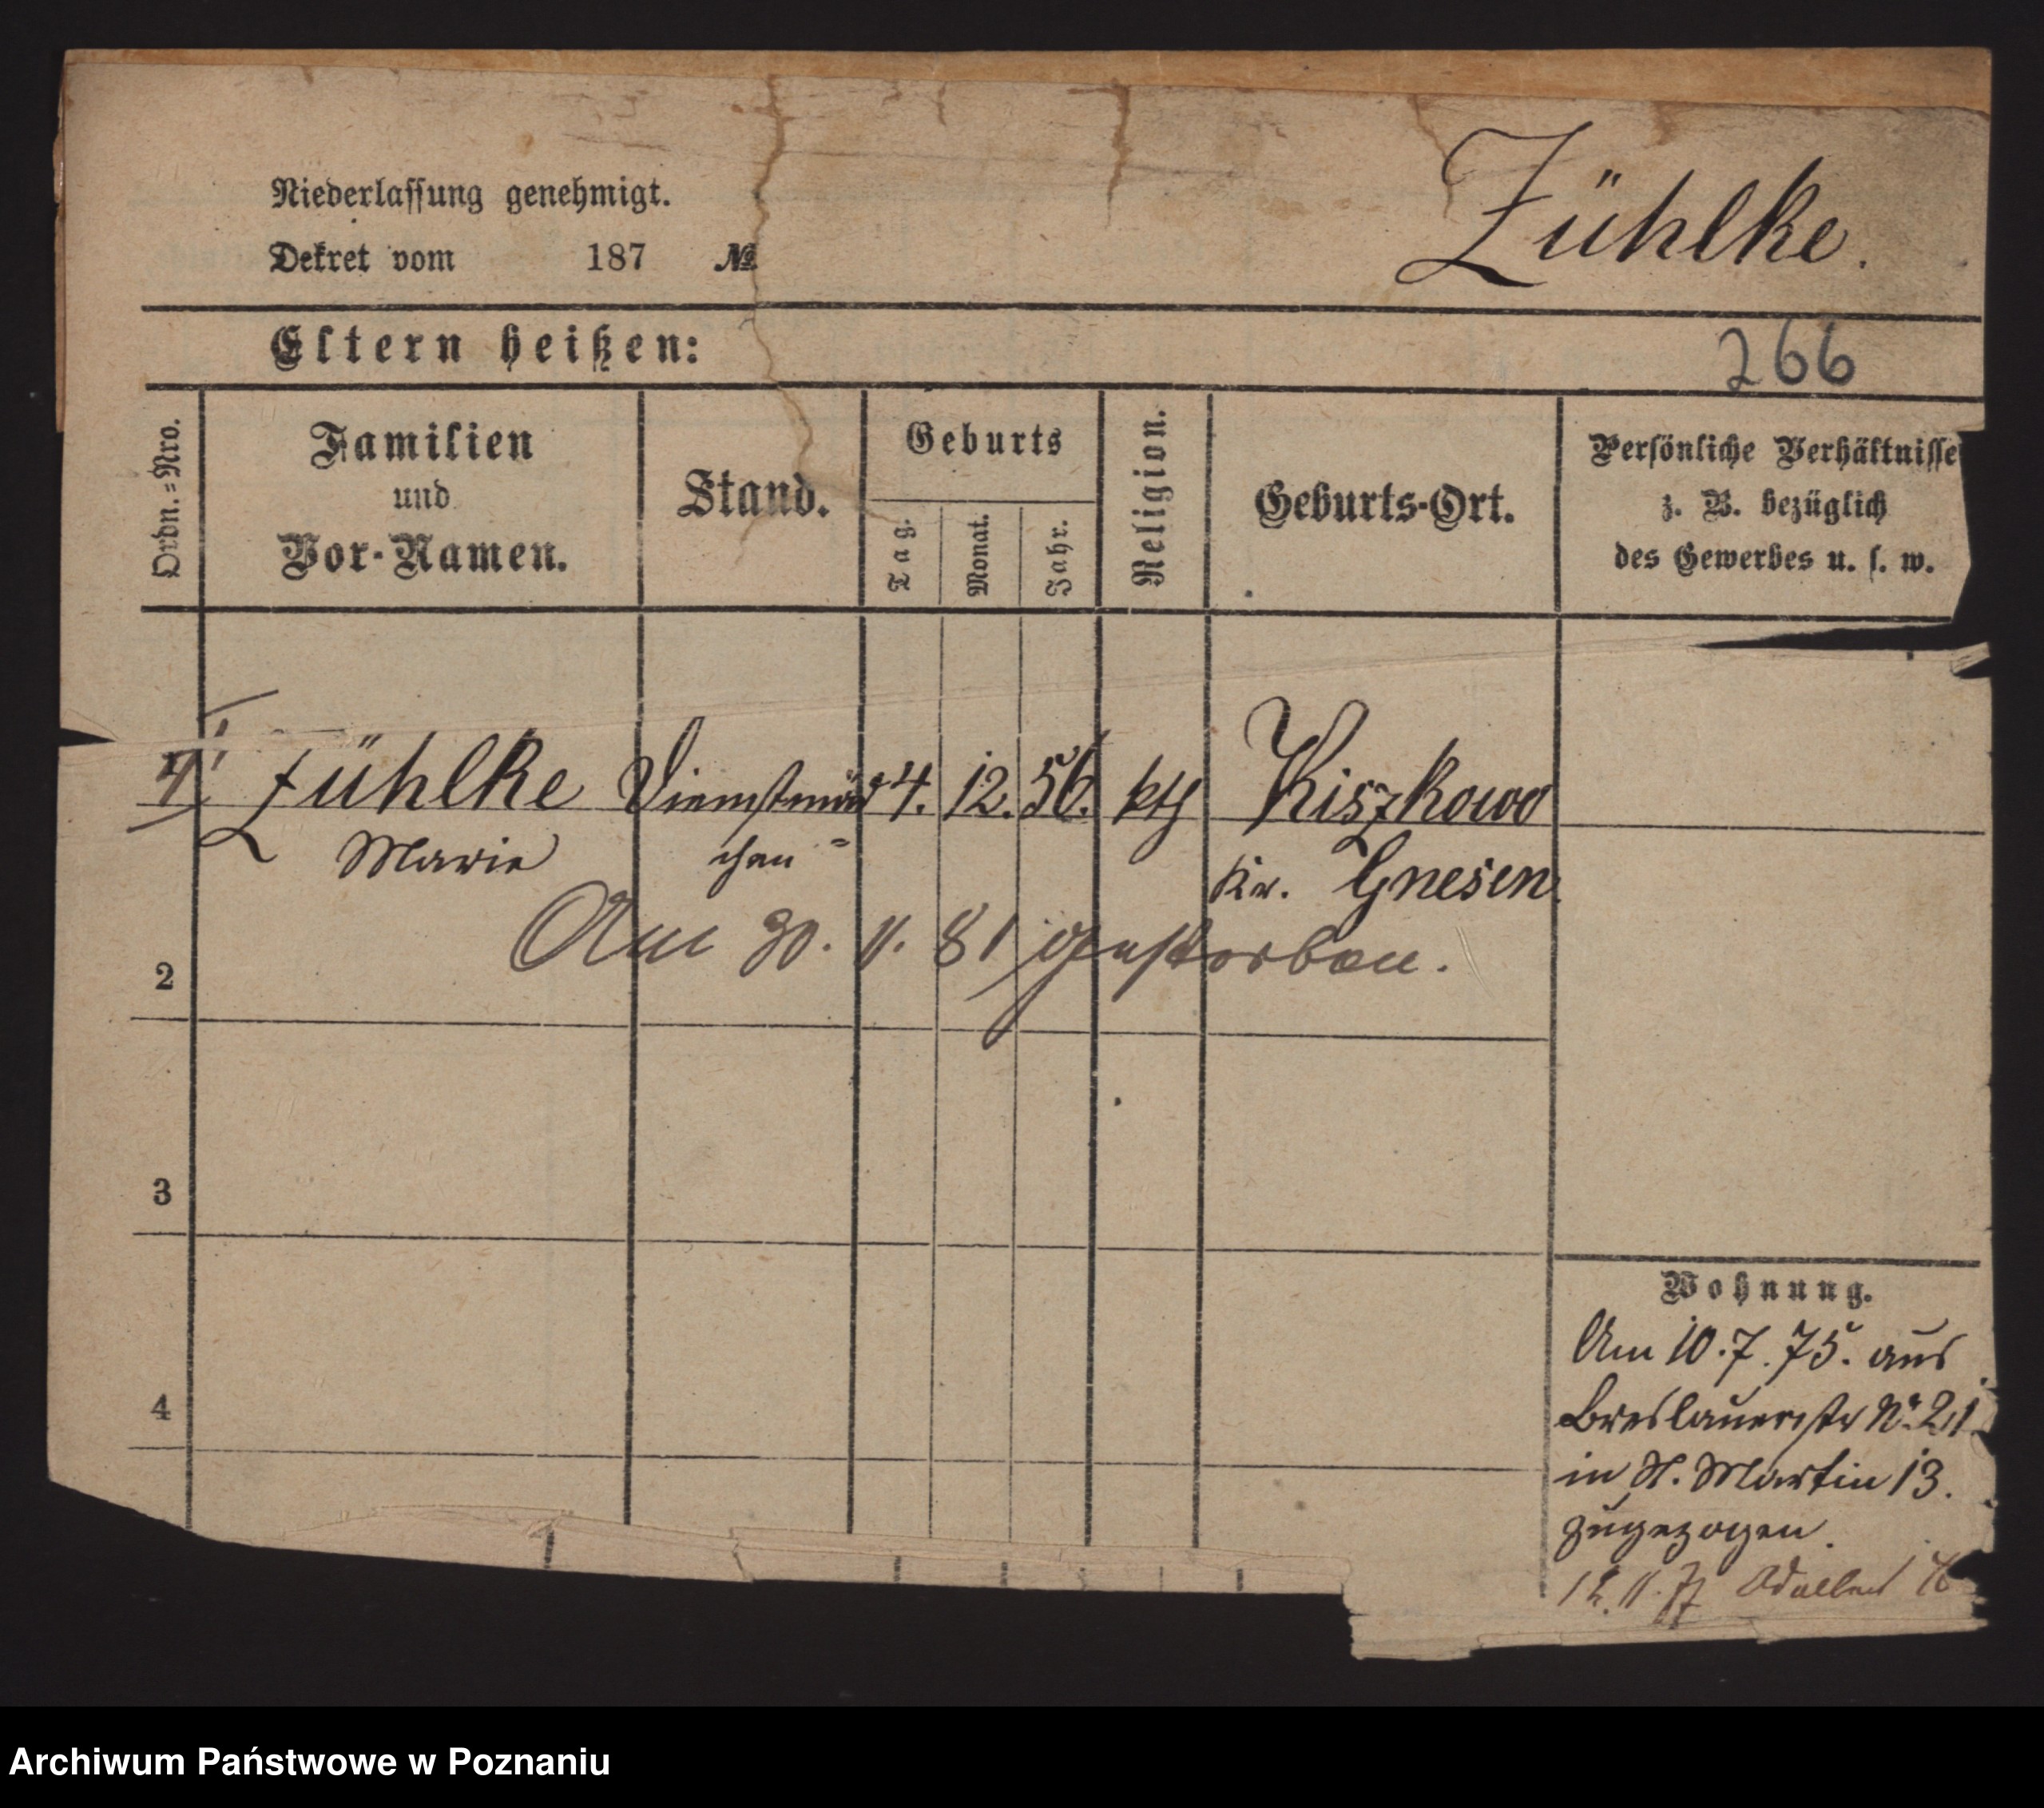 Niederlassung genehmigt.
Dekret vom 187 №
Zühlke.
Eltern heißen:
266
Ordn.=Nro.
Familien
und
Vor-Namen.
Stand.
Geburts
Tag.
Monat.
Jahr.
Religion.
Geburts-Ort.
Persönliche Verhältnisse
z. B. bezüglich
des Gewerbes u. s. w.
Zühlke Dienstmäd 4. 12. 56. kth Kiszkowo
Marie chen Kr. Gnesen.
Am 30. 11. 81 gestorben.
2
3
4
Wohnung.
Am 10.7.75. aus
Breslauerstr Nr. 21
in St. Martin 13.
zugezogen.
11.77
Archiwum Państwowe w Poznaniu